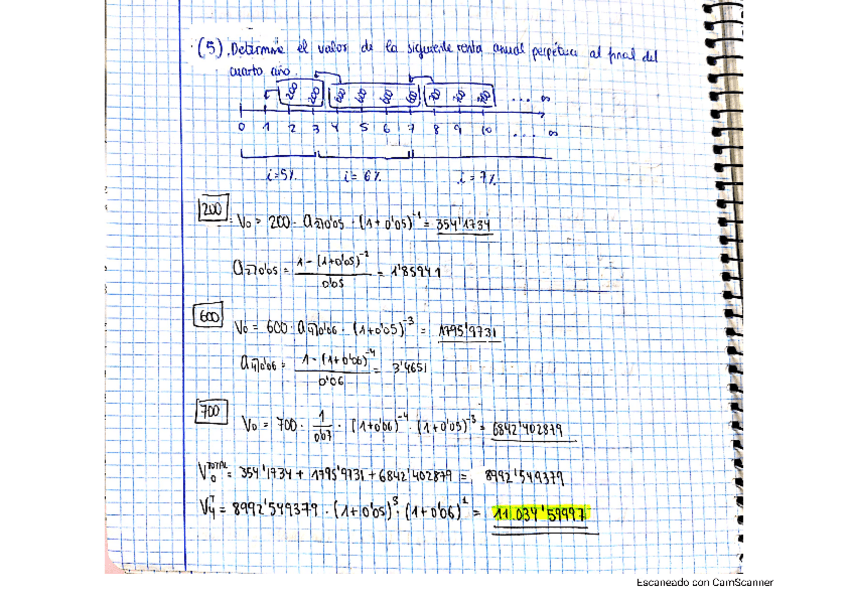 (5). Determine el valor de la siguiente renta anual perpétua al final del
cuarto año
200 200 600 600 600 600 700 700 700 ... ∞
0 1 2 3 4 5 6 7 8 9 10 ... ∞
i=5% i=6% i=7%
200
V₀ = 200 · a2¬0'05 · (1+0'05)⁻¹ = 354'1734
a2¬0'05 = 1-(1+0'05)⁻² / 0'05 = 1'85941
600
V₀ = 600 · a4¬0'06 · (1+0'05)⁻³ = 1795'9731
a4¬0'06 = 1-(1+0'06)⁻⁴ / 0'06 = 3'4651
700
V₀ = 700 · 1/0'07 · (1+0'06)⁻⁴ · (1+0'05)⁻³ = 6842'402879
V₀ᵀᴼᵀᴬᴸ = 354'1734 + 1795'9731 + 6842'402879 = 8992'549379
V₄ᵀ = 8992'549379 · (1+0'05)³ · (1+0'06)¹ = 11.034'59997
Escaneado con CamScanner